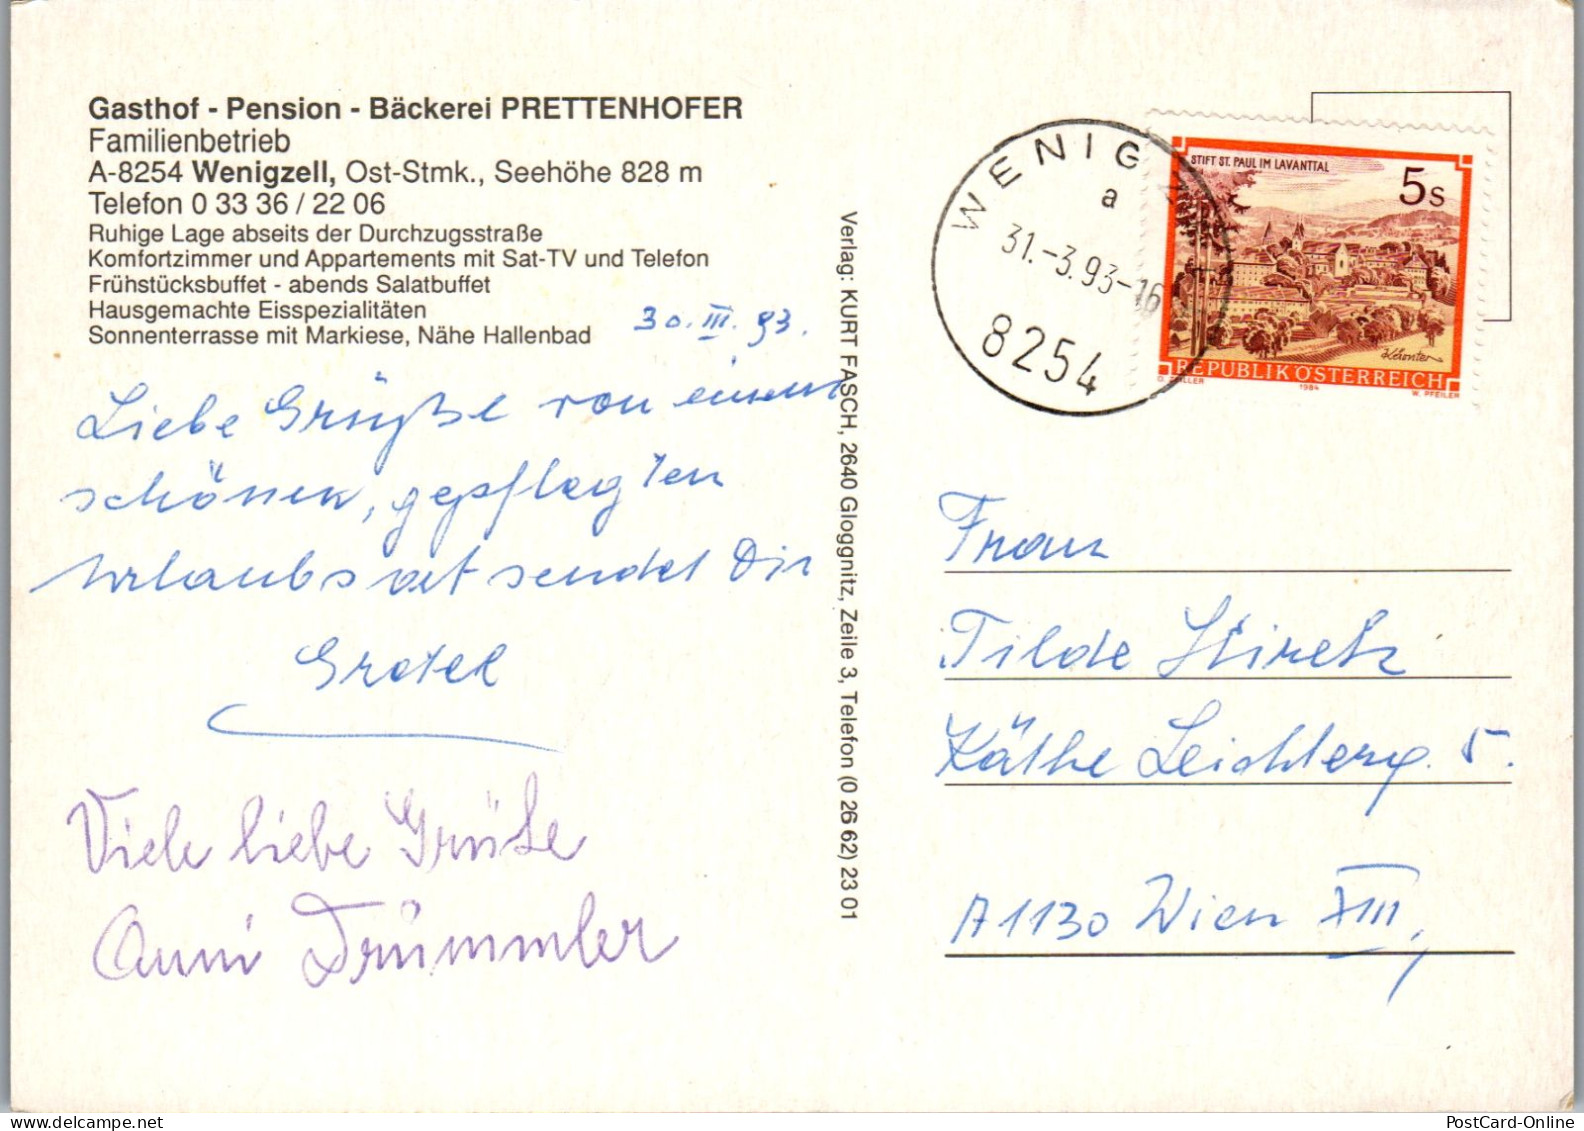 Gasthof - Pension - Bäckerei PRETTENHOFER
Familienbetrieb
A-8254 Wenigzell, Ost-Stmk., Seehöhe 828 m
Telefon 0 33 36 / 22 06
Ruhige Lage abseits der Durchzugsstraße
Komfortzimmer und Appartements mit Sat-TV und Telefon
Frühstücksbuffet - abends Salatbuffet
Hausgemachte Eisspezialitäten
Sonnenterrasse mit Markiese, Nähe Hallenbad
30. III. 93.
Liebe Grüße von einem
schönen, gepflegten
Urlaubsort sendet Dir
Gretel
Viele liebe Grüße
Anni Drümmler
Verlag: KURT FASCH, 2640 Gloggnitz, Zeile 3, Telefon (0 26 62) 23 01
WENIG
a
31.-3.93-16
8254
STIFT ST. PAUL IM LAVANTTAL
5s
REPUBLIK ÖSTERREICH
1984
W. PFEILER
Frau
Tilde
Käthe Leichterg. 5
A1130 Wien XIII,
PostCard-Online